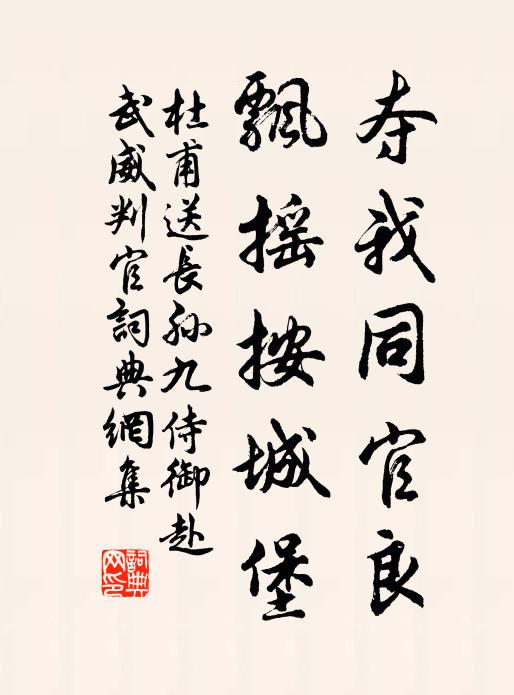 夺我同官良
飘摇按城堡
杜甫送長孙九侍御赴
武威判官詞典網集
詞典
网印